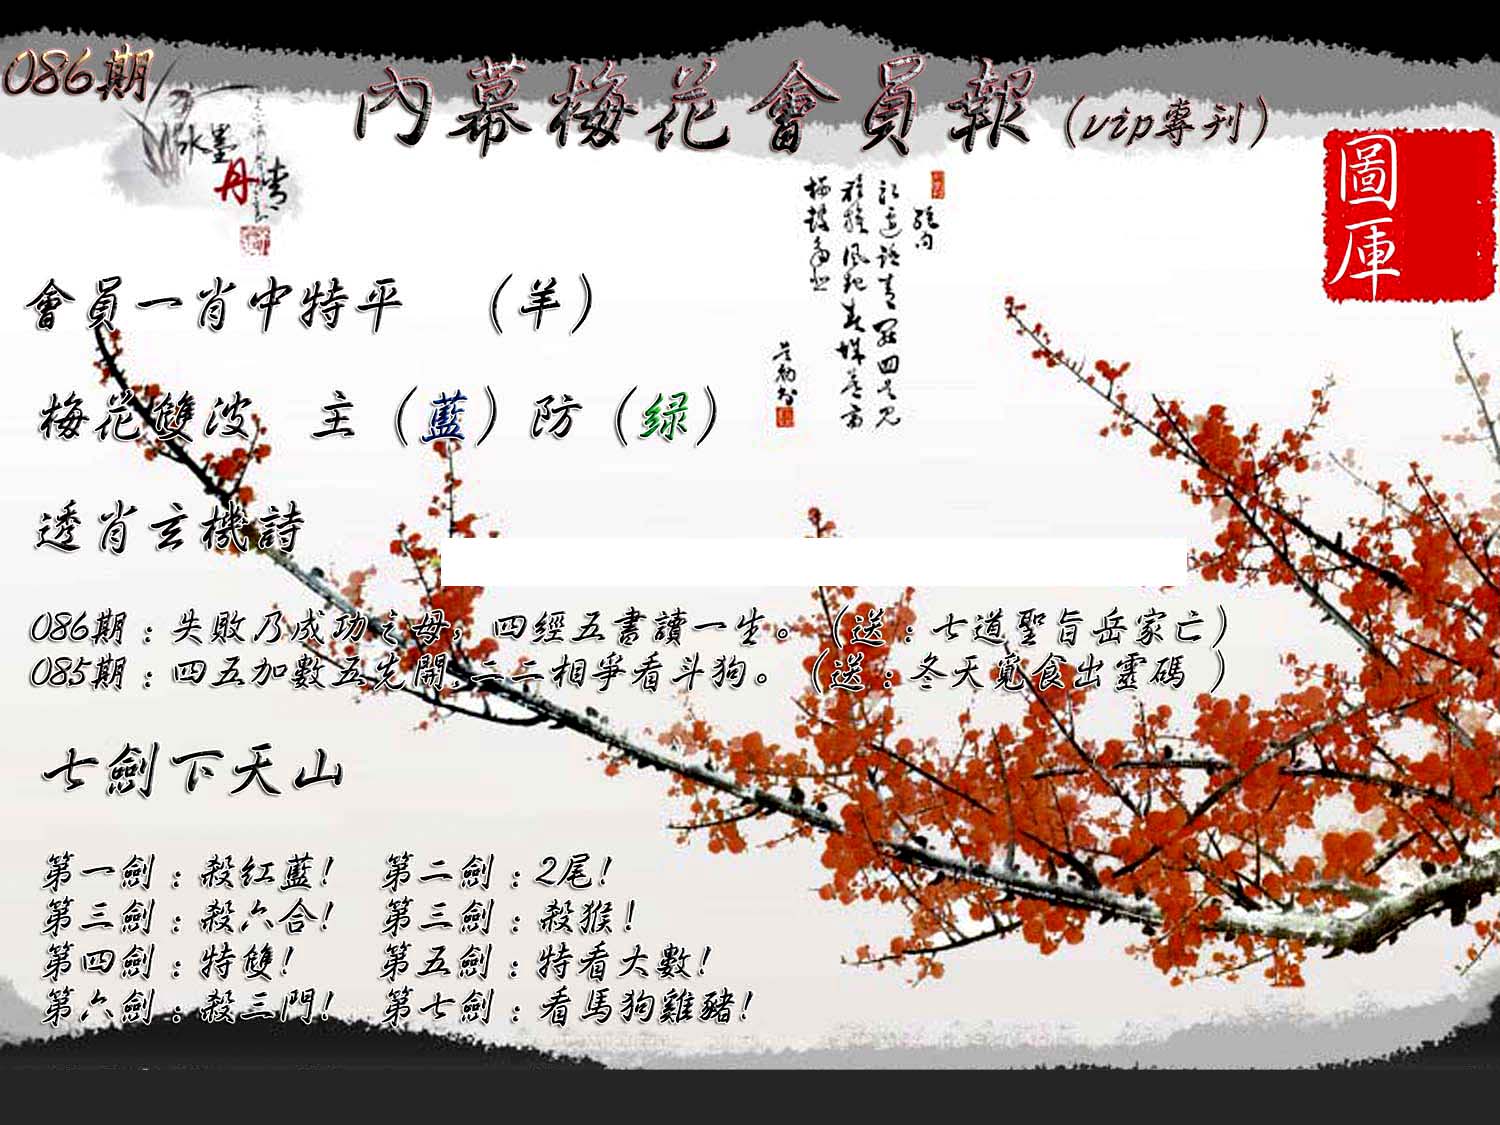 086期
內幕梅花會員報（vip專刊）
水墨
丹青
圖庫
會員一肖中特平 （羊）
梅花雙波 主（藍）防（绿）
透肖玄機詩
086期：失敗乃成功之母，四經五書讀一生。（送：七道聖旨岳家亡）
085期：四五加數五先開,二二相爭看斗狗。（送：冬天寬食出靈碼 ）
七劍下天山
第一劍：殺红藍！ 第二劍：2尾！
第三劍：殺六合！ 第三劍：殺猴！
第四劍：特雙！ 第五劍：特看大數！
第六劍：殺三門！ 第七劍：看馬狗雞豬！